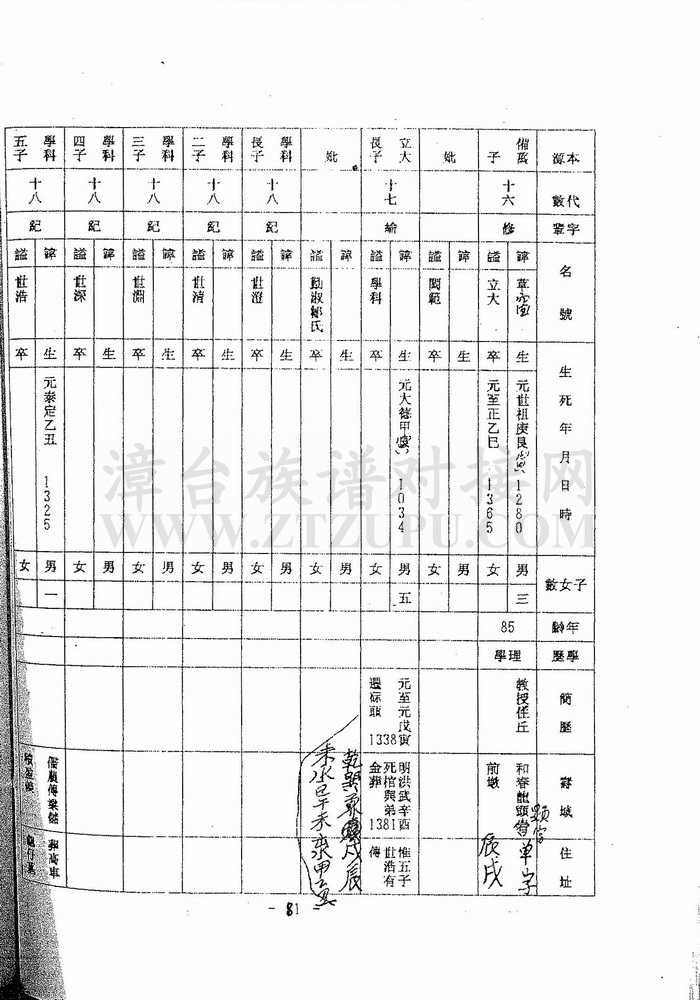 本源
代數
字輩
名號
生死年月日時
子女數
年齡
學歷
簡歷
壽城住址
備萬
子
十六
修
諱 章
謚 立大
生 元世祖庚 1280
卒 元至正乙巳 1365
男 三
女
85
理學
教授任丘
和春龍頭
前墩
單字
辰戌
妣
諱
謚 閩範
生
卒
男
女
立大
長子
十七
諱
謚 學科
生 元大德甲 1034
卒
男 五
女
元至元戊寅
還 頭 1338
明洪武辛酉
死棺與弟 1381
金葬
惟五子
世浩有
傳
妣
諱
謚 勤淑鄭氏
生
卒
男
女
學科
長子
十八
紀
諱
謚 世澄
生
卒
男
女
學科
二子
十八
紀
諱
謚 世清
生
卒
男
女
學科
三子
十八
紀
諱
謚 世淵
生
卒
男
女
學科
四子
十八
紀
諱
謚 世深
生
卒
男
女
學科
五子
十八
紀
諱
謚 世浩
生 元泰定乙丑 1325
卒
男 一
女
- 81 -
漳台族谱对接网
WWW.ZTZUPU.COM